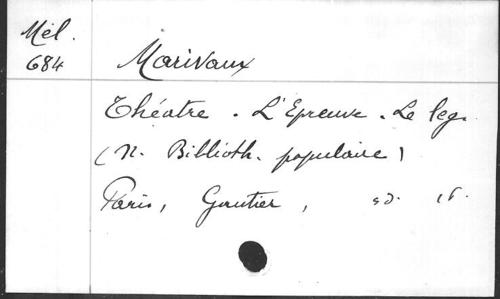 Mél.
684
Marivaux
Théatre. L'Epreuve. Le leg.
(N. Biblioth. populaire)
Paris, Gautier, sd. 16.